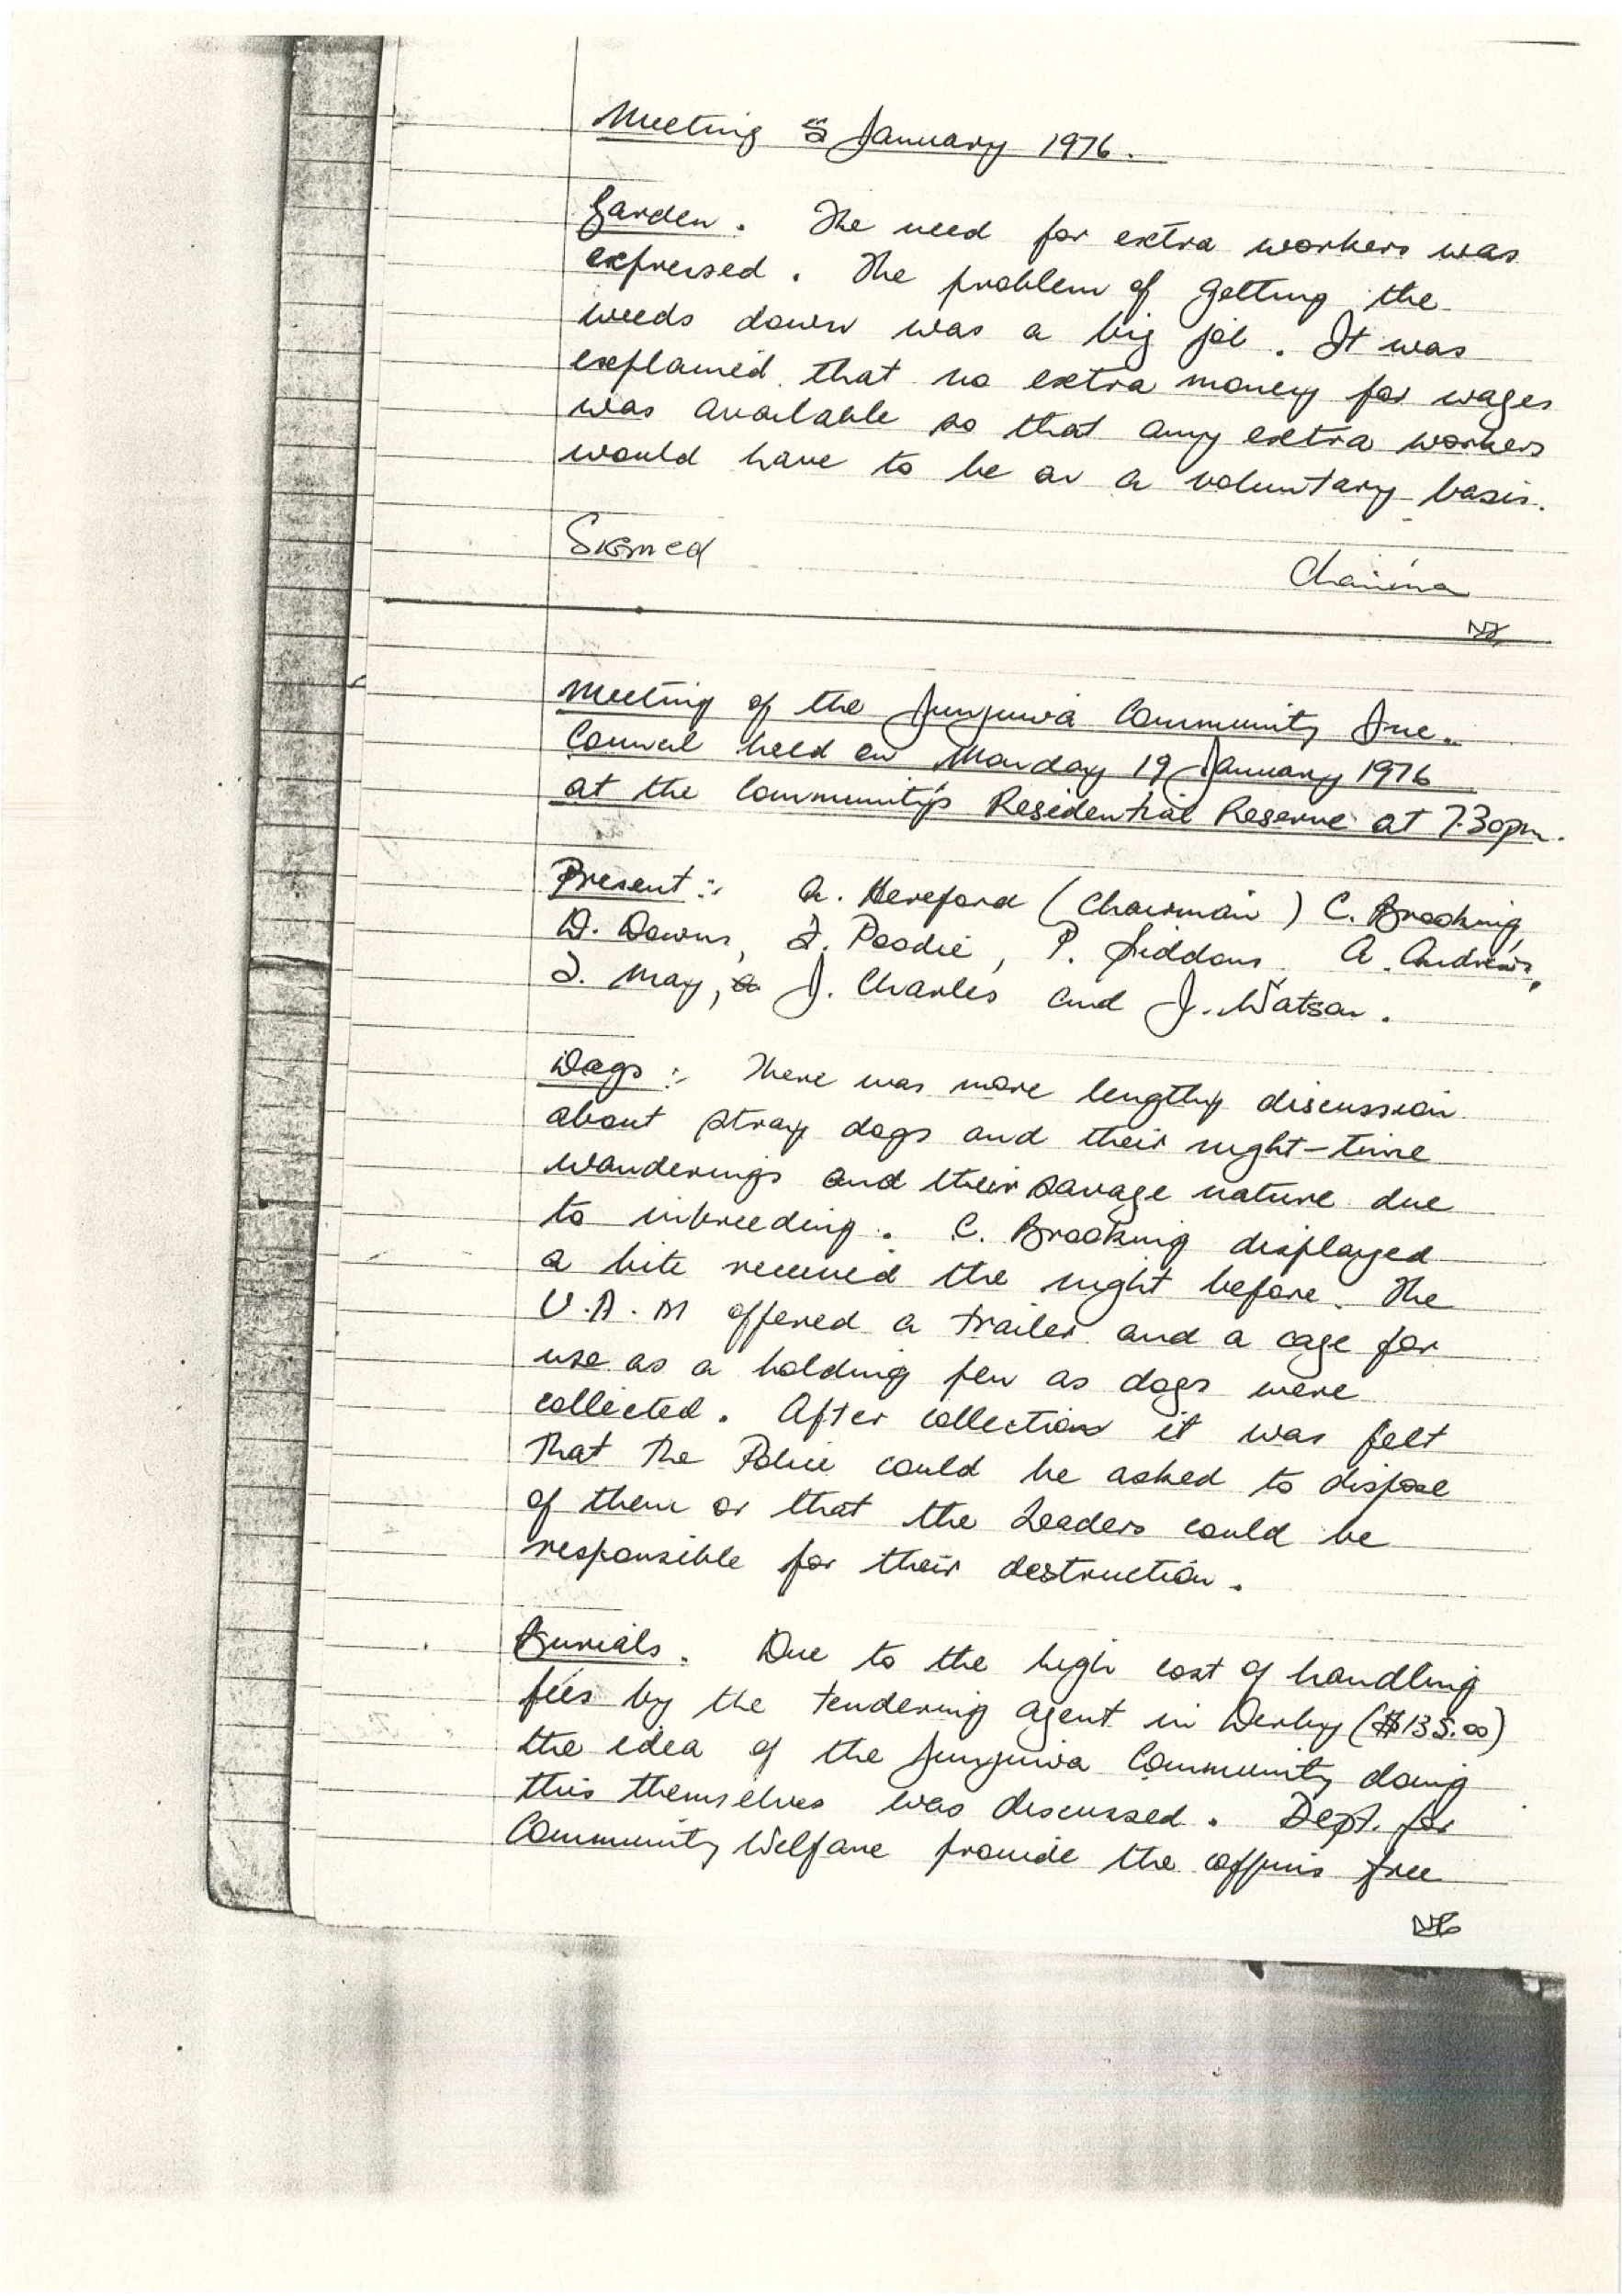 Meeting 5 January 1976.
Garden. The need for extra workers was
expressed. The problem of getting the
weeds down was a big job. It was
explained that no extra money for wages
was available so that any extra workers
would have to be on a voluntary basis.
Signed
Chairma
Meeting of the Junjuwa Community Inc.
Council held on Monday 19 January 1976
at the Community's Residential Reserve at 7.30pm.
Present:- A. Hereford (Chairman) C. Brooking,
D. Downs, I. Poodie, P. Siddons A. Andrews,
I. May, J. Charles and J. Watson.
Dogs:- There was more lengthy discussion
about stray dogs and their night-time
wanderings and their savage nature due
to inbreeding. C. Brooking displayed
a bite received the night before. The
U.A.M offered a trailer and a cage for
use as a holding pen as dogs were
collected. After collection it was felt
that the Police could be asked to dispose
of them or that the Leaders could be
responsible for their destruction.
Burials. Due to the high cost of handling
fees by the tendering agent in Derby ($135.00)
the idea of the Junjuwa Community doing
this themselves was discussed. Dept. for
Community Welfare provide the coffins free